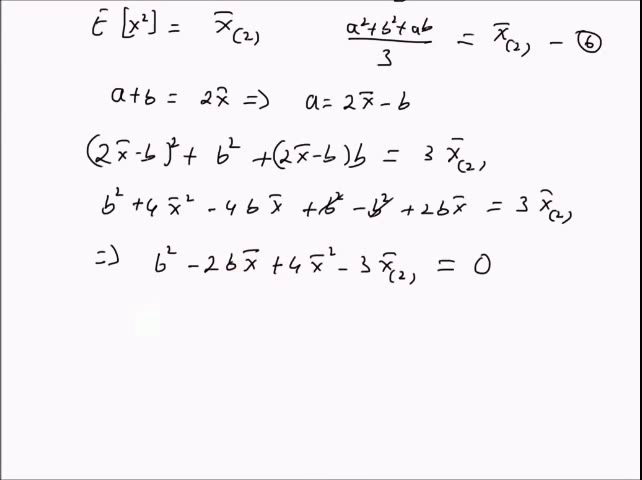 E[x²] = x̄₍₂₎ (a²+b²+ab)/3 = x̄₍₂₎ — ⑥
a+b = 2x̄ => a = 2x̄ - b
(2x̄-b)² + b² + (2x̄-b)b = 3x̄₍₂₎
b² + 4x̄² - 4bx̄ + b² - b² + 2bx̄ = 3x̄₍₂₎
=> b² - 2bx̄ + 4x̄² - 3x̄₍₂₎ = 0